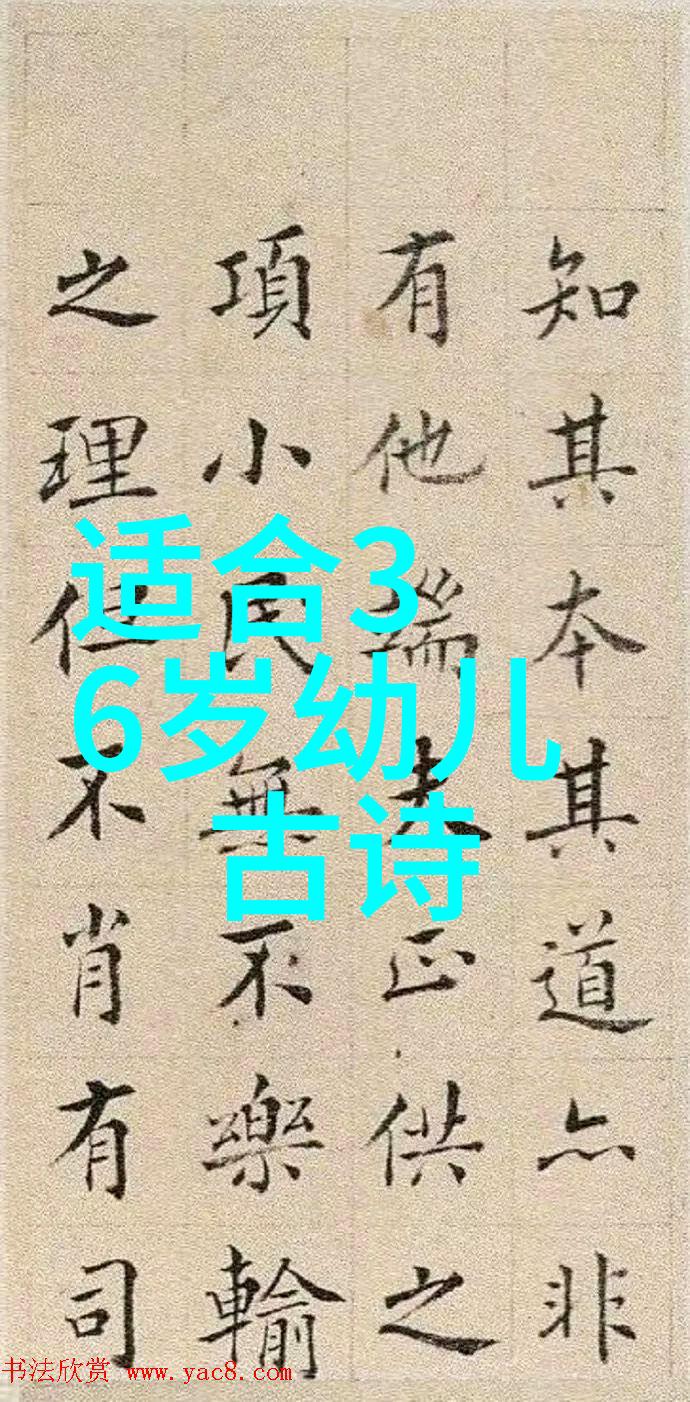 知其本其道亦非
有他端夫正供之
項小民無不樂輸
之理但不肖有司
适合3
6岁幼儿
古诗
书法欣赏 www.yac8.com